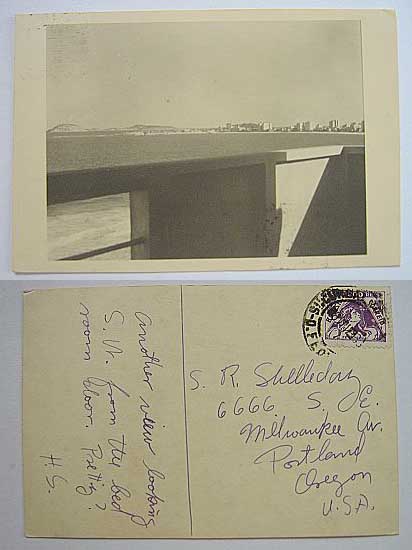 Another view looking
S.W. from the bed
room door. Pretty?
H.S.
S. R. Shelleday
6666 S. E.
Milwaukee Av.
Portland
Oregon
U.S.A.